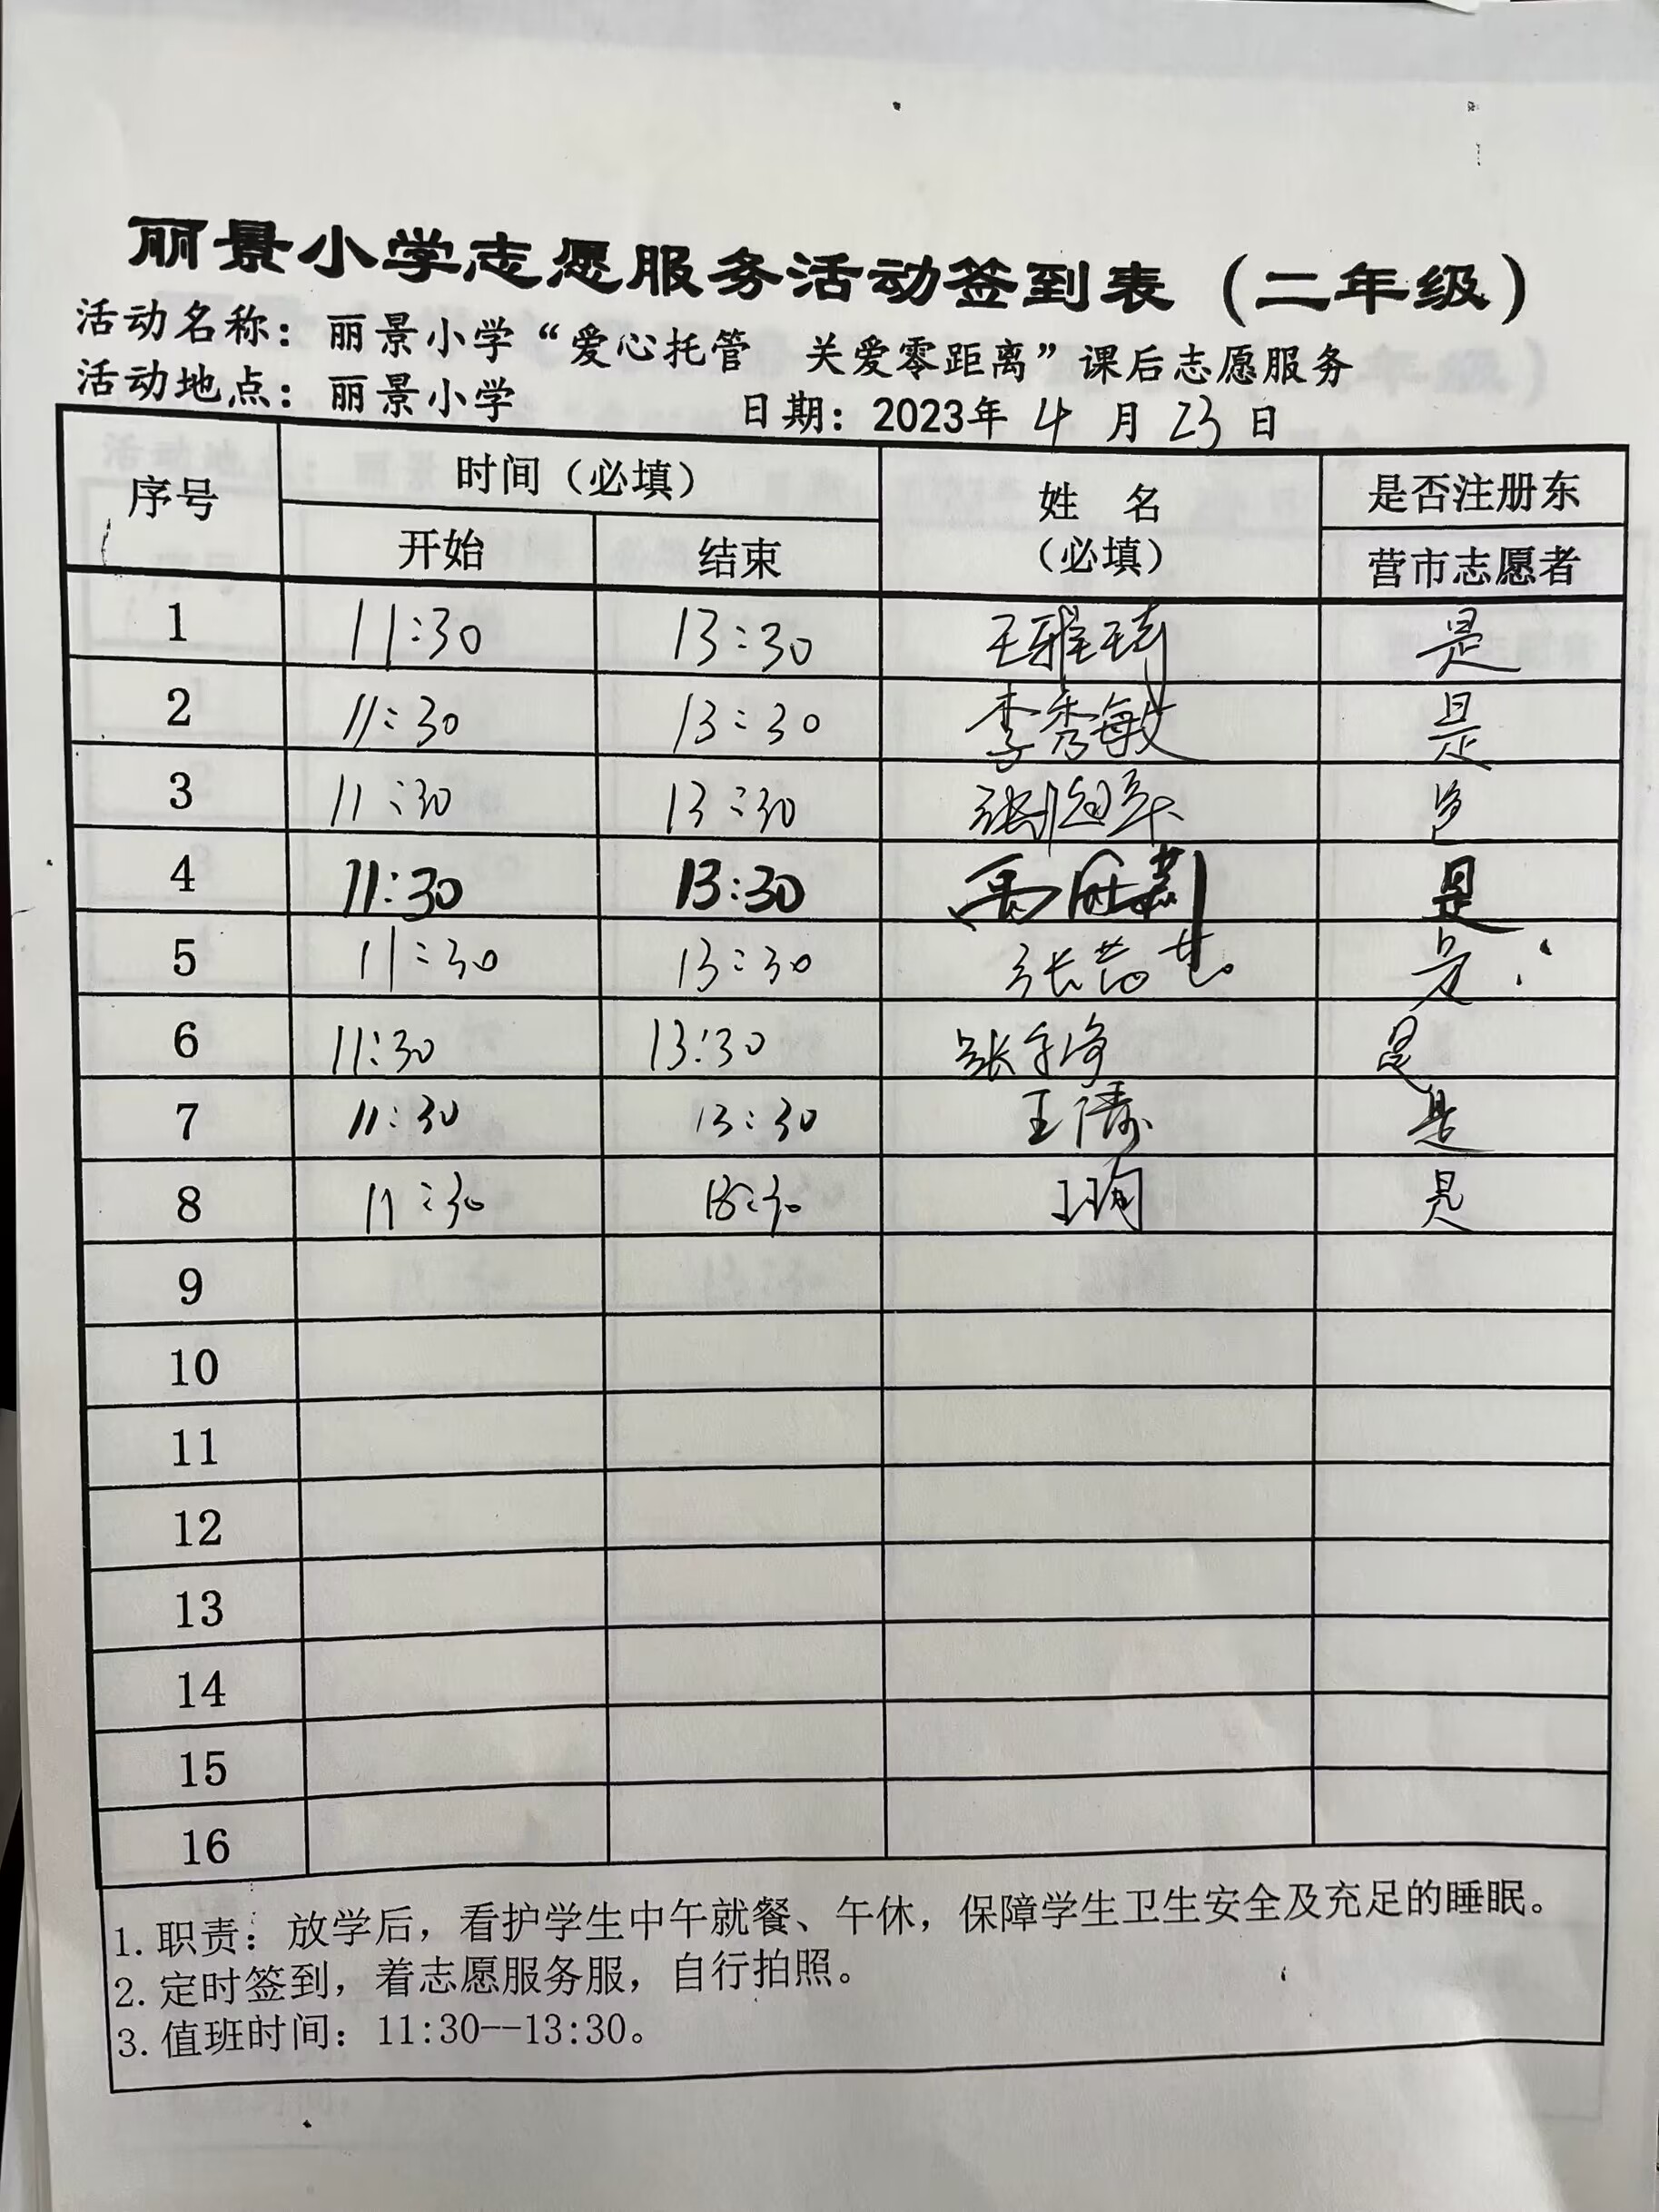 丽景小学志愿服务活动签到表（二年级）
活动名称：丽景小学“爱心托管 关爱零距离”课后志愿服务
活动地点：丽景小学 日期：2023年 4 月 23 日
序号 时间（必填） 姓 名（必填） 是否注册东营市志愿者
开始 结束
1 11:30 13:30 王雅琦 是
2 11:30 13:30 李秀敏 是
3 11:30 13:30 是
4 11:30 13:30 是
5 11:30 13:30 是
6 11:30 13:30 是
7 11:30 13:30 王涛 是
8 11:30 13:30 王珣 是
9
10
11
12
13
14
15
16
1. 职责：放学后，看护学生中午就餐、午休，保障学生卫生安全及充足的睡眠。
2. 定时签到，着志愿服务服，自行拍照。
3. 值班时间：11:30--13:30。